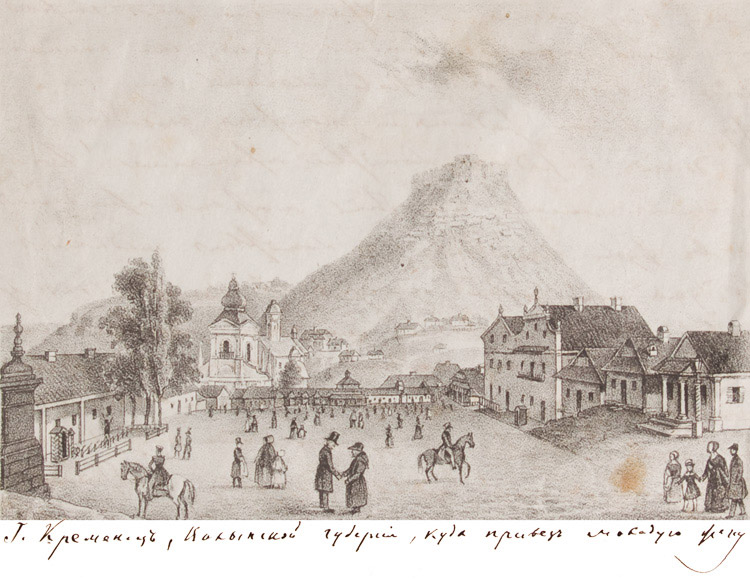 Г. Кременецъ, Волынской губерніи, куда привезъ молодую жену